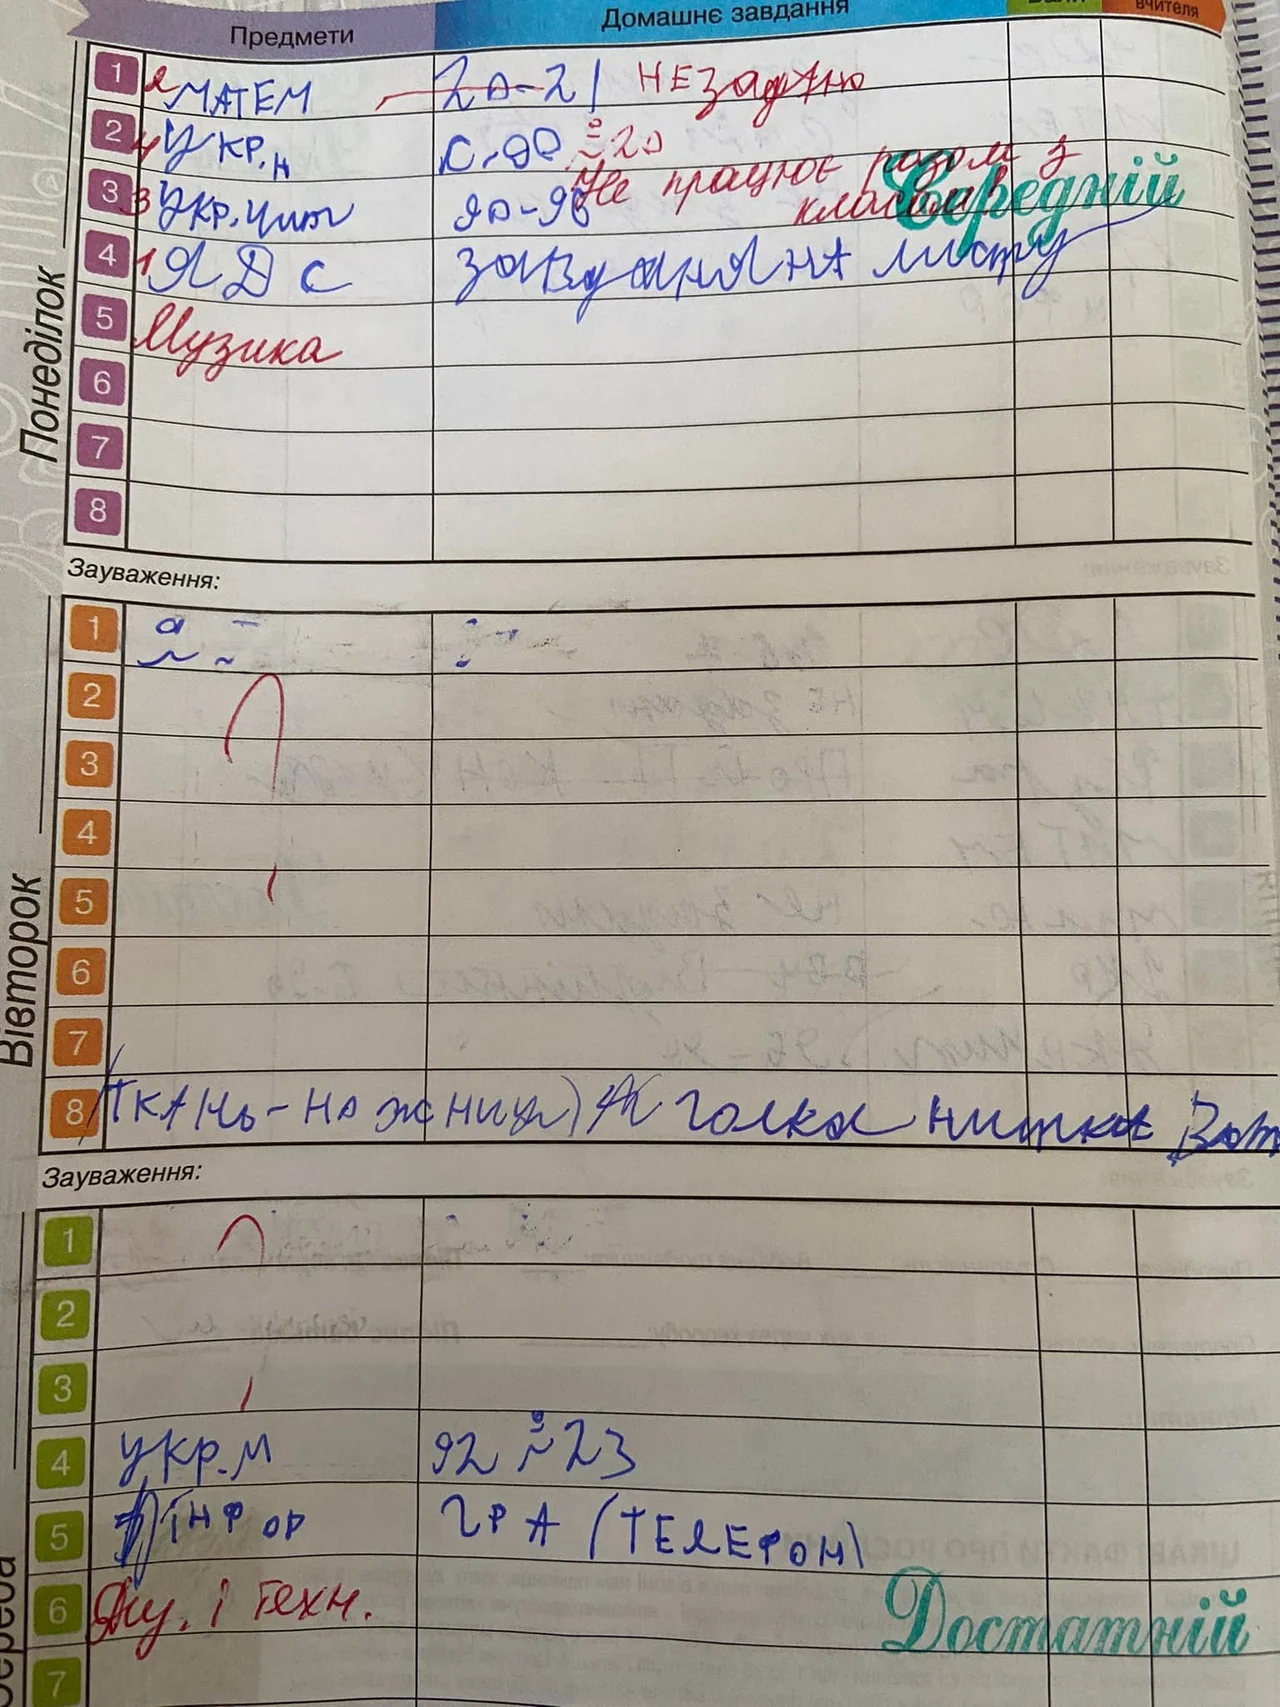 Предмети Домашнє завдання вчителя
Понеділок
1 2 МАТЕМ 20-21 НЕ задано
2 4 УКР. с. 90 20
3 3 Укр. чит 90-96 Не працює разом з класом Середній
4 1 ЯДС завдання на листу
5 Музика
6
7
8
Зауваження:
Вівторок
1
2
3
4
5
6
7
8 (ТКАНЬ-ножниці) голка нитка
Зауваження:
Середа
1
2
3
4 укр.м 92 23
5 ІНФОР ГРА (ТЕЛЕФОН)
6 і техн. Достатній
7